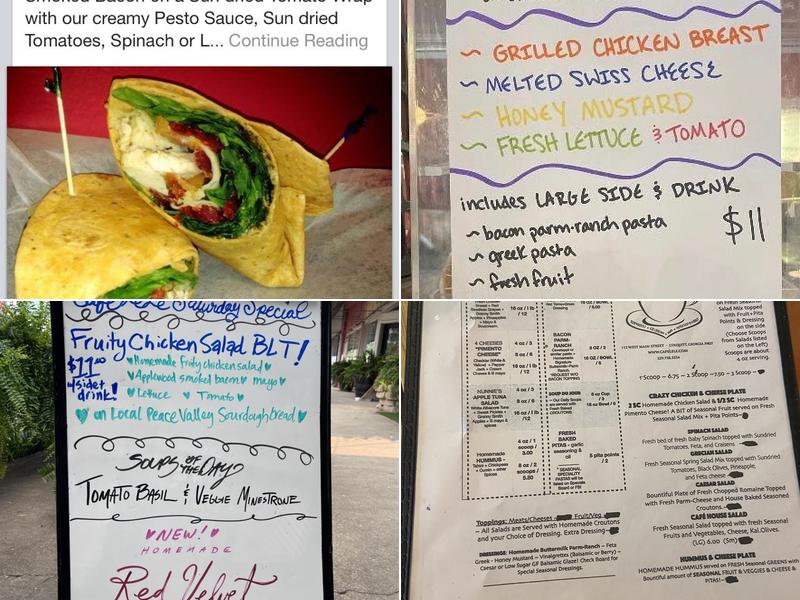 with our creamy Pesto Sauce, Sun dried
Tomatoes, Spinach or L... Continue Reading
~ GRILLED CHICKEN BREAST
~ MELTED SWISS CHEESE
~ HONEY MUSTARD
~ FRESH LETTUCE & TOMATO
includes LARGE SIDE & DRINK
~ bacon parm-ranch pasta
$11
~ greek pasta
~ fresh fruit
Saturday Special
Fruity Chicken Salad BLT!
$11.00
w/side &
drink!
Homemade fruity chicken salad
Applewood smoked bacon mayo
Lettuce Tomato
on Local Peace Valley Sourdough bread
SOUPS OF THE DAY
TOMATO BASIL & VEGGIE MINESTRONE
NEW!
HOMEMADE
Red Velvet
4 CHEESES
"PIMENTO
CHEESE"
4 oz / 3
8 oz / 6
16 oz / 1 lb
/ 12
BACON
PARM-
RANCH
8 OZ / 3
16 OZ / BOWL
/ 6.00
NUNNIE'S
APPLE TUNA
SALAD
4 oz / 3
8 oz / 6
16 oz / 1 lb
/ 12
SOUP DU JOUR
8 oz Cup
/ 3
16 oz Bowl / 6
Homemade
HUMMUS -
4 oz / 1
scoop /
3.00
8 oz / 2
scoops /
5.50
FRESH
BAKED
PITAS - garlic
seasoning &
olive oil
5 pita points
/ 2
Toppings: Meats/Cheeses Fruit/Veg
– All Salads are Served with Homemade Croutons
and your Choice of Dressing. Extra Dressing
DRESSINGS: Homemade Buttermilk Parm-Ranch ~ Feta
Greek - Honey Mustard ~ Vinaigrettes (Balsamic or Berry) ~
Caesar or Low Sugar GF Balsamic Glaze! Check Board for
Special Seasonal Dressings.
Salad Mix topped
with Fruit + Pita
Points & Dressing
on the side
(Choose Scoops
from Salads
listed on the
Left)
Scoops are about
4 oz serving.
1 Scoop – 6.75 ~ 2 Scoop – 7.50 ~ 3 Scoop –
CRAZY CHICKEN & CHEESE PLATE
2 SC Homemade Chicken Salad & 1/2 SC Homemade
Pimento Cheese! A BIT of Seasonal Fruit served on Fresh
Seasonal Salad Mix + Pita Points
SPINACH SALAD
Fresh bed of fresh Baby Spinach topped with Sundried
Tomatoes, Feta, and Craisins
GRECIAN SALAD
Fresh Seasonal Spring Salad Mix topped with Sundried
Tomatoes, Black Olives, Pineapple,
and Feta cheese
CAESAR SALAD
Bountiful Plate of Fresh Chopped Romaine Topped
with Fresh Parm-Cheese and House Baked Seasoned
Croutons.
CAFÉ HOUSE SALAD
Fresh Seasonal Salad topped with fresh Seasonal
Fruits and Vegetables, Cheese, Kal.Olives.
(LG) 6.00 (Sm)
HUMMUS & CHEESE PLATE
HOMEMADE HUMMUS served on FRESH SEASONAL GREENS with
Bountiful amount of SEASONAL FRUIT & VEGGIES & CHEESE &
PITAS!